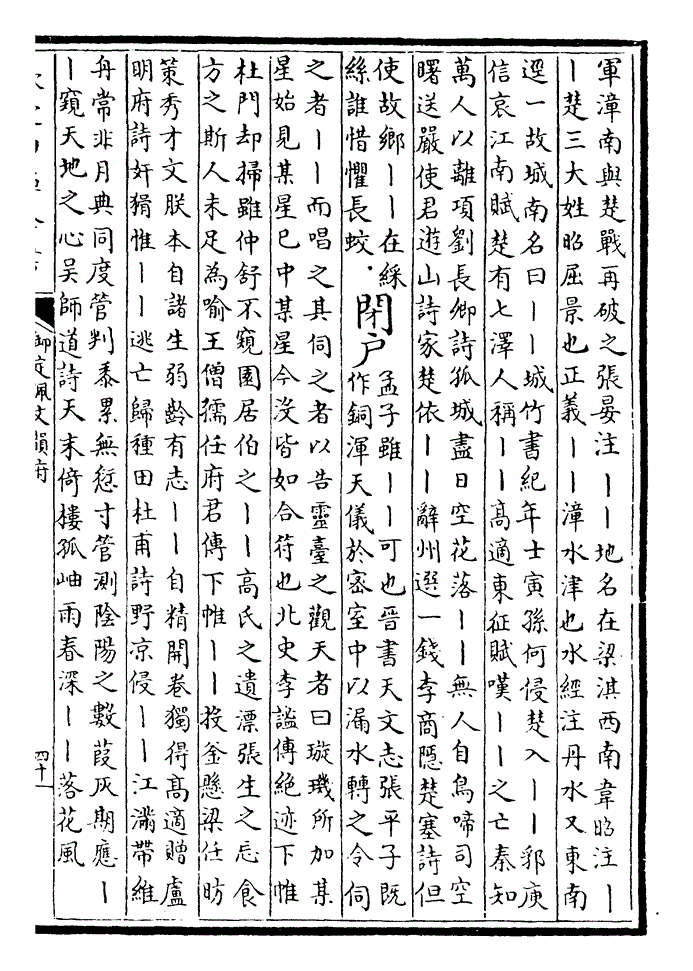 軍漳南與楚戰再破之張晏注丨丨地名在梁淇西南韋昭注丨
丨楚三大姓昭屈景也正義丨丨漳水津也水經注丹水又東南
逕一故城南名曰丨丨城竹書紀年士寅孫何侵楚入丨丨郛庾
信哀江南賦楚有七澤人稱丨丨髙適東征賦嘆丨丨之亡秦知
萬人以離項劉長卿詩孤城盡日空花落丨丨無人自鳥啼司空
曙送嚴使君遊山詩家楚依丨丨辭州選一錢李商隱楚塞詩但
使故鄉丨丨在綵
絲誰惜懼長蛟
閉戶
孟子雖丨丨可也晉書天文志張平子既
作銅渾天儀於密室中以漏水轉之令伺
之者丨丨而唱之其伺之者以告靈臺之觀天者曰璇璣所加某
星始見某星已中某星今沒皆如合符也北史李謐傳絶迹下帷
杜門却掃雖仲舒不窺園居伯之丨丨高氏之遺漂張生之忘食
方之斯人未足為喻王僧孺任府君傳下帷丨丨投釜懸梁任昉
策秀才文朕本自諸生弱齡有志丨丨自精開卷獨得髙適贈盧
明府詩奸猾惟丨丨逃亡歸種田杜甫詩野凉侵丨丨江滿帶維
舟常非月典同度管判黍累無愆寸管測陰陽之數葭灰期應丨
丨窺天地之心吳師道詩天末倚樓孤岫雨春深丨丨落花風
御定佩文韻府
四十